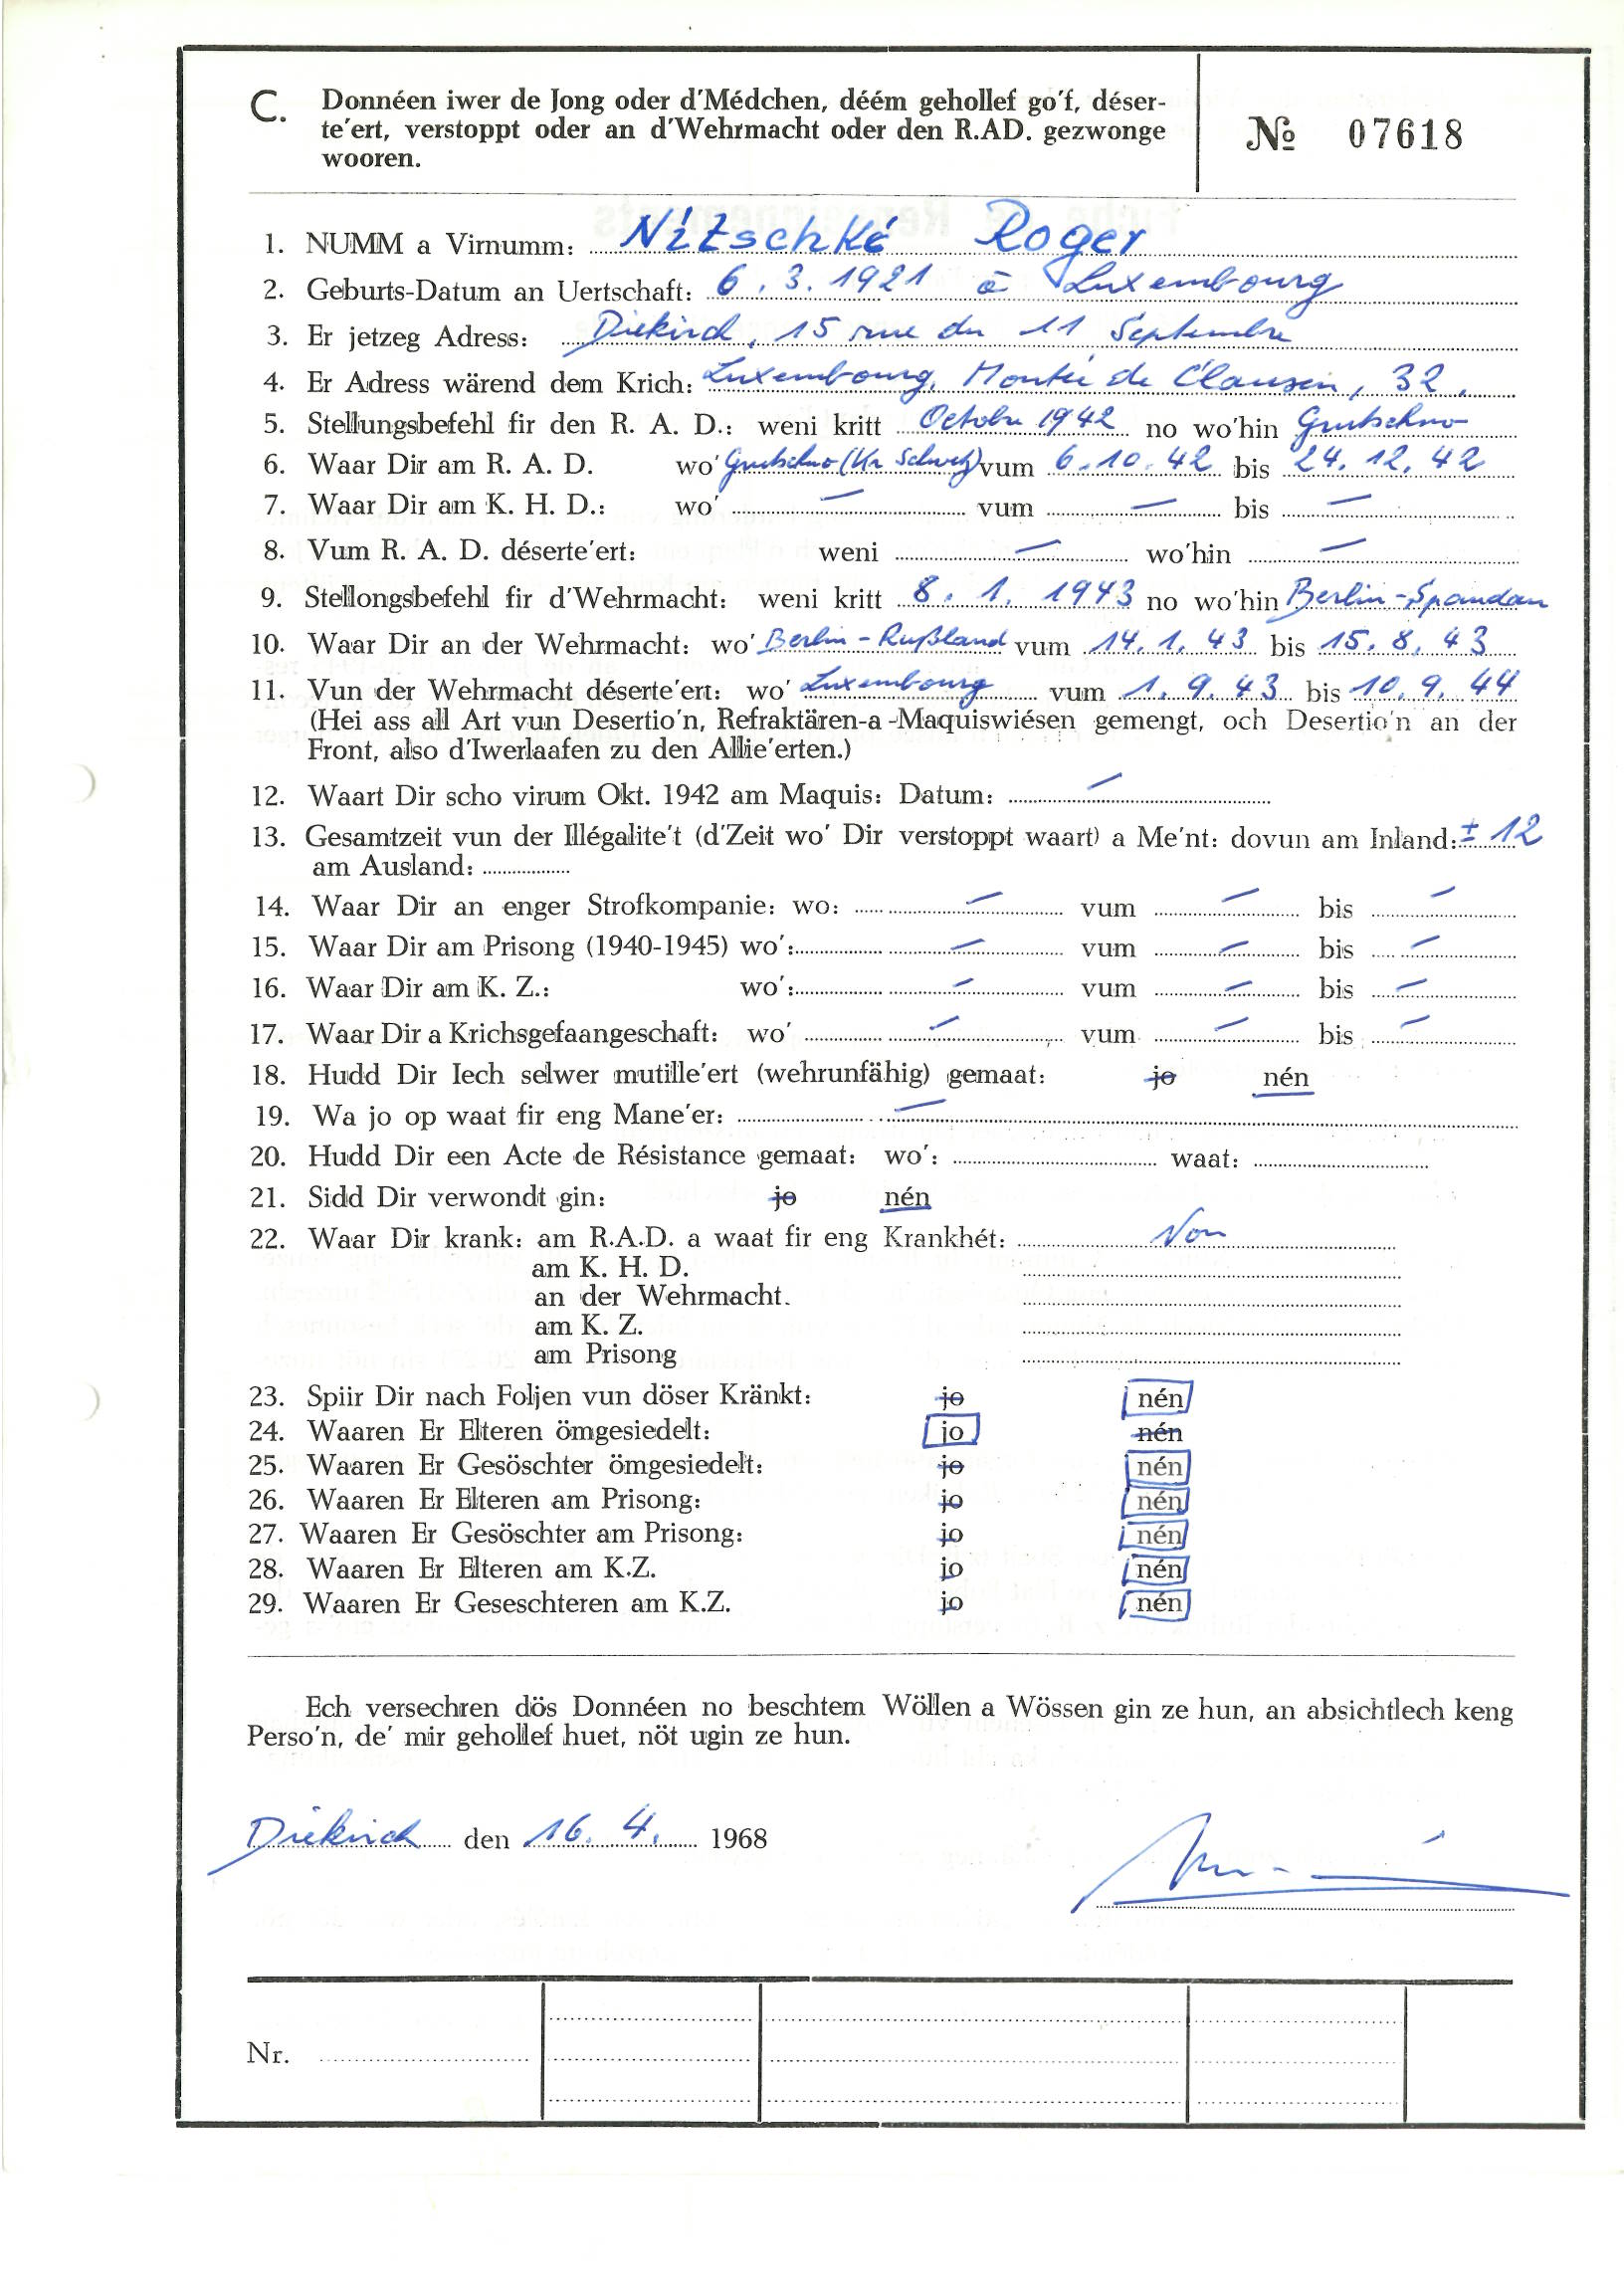 C. Donnéen iwer de Jong oder d'Médchen, déém gehollef go'f, déser-
te'ert, verstoppt oder an d'Wehrmacht oder den R.AD. gezwonge
wooren.
№ 07618
1. NUMM a Virnumm: Nitschké Roger
2. Geburts-Datum an Uertschaft: 6.3.1921 à Luxembourg
3. Er jetzeg Adress: Diekirch, 15 rue du 11 Septembre
4. Er Adress wärend dem Krich: Luxembourg, Montée de Clausen, 32.
5. Stellungsbefehl fir den R. A. D.: weni kritt Octobre 1942 no wo'hin Grutschno
6. Waar Dir am R. A. D. wo' Grutschno (Kr Schwetz) vum 6.10.42 bis 24.12.42
7. Waar Dir am K. H. D.: wo' — vum — bis —
8. Vum R. A. D. déserte'ert: weni — wo'hin —
9. Stellongsbefehl fir d'Wehrmacht: weni kritt 8. 1. 1943 no wo'hin Berlin-Spandau
10. Waar Dir an der Wehrmacht: wo' Berlin-Rußland vum 14.1.43 bis 15.8.43
11. Vun der Wehrmacht déserte'ert: wo' Luxembourg vum 1.9.43 bis 10.9.44
(Hei ass all Art vun Desertio'n, Refraktären-a-Maquiswiésen gemengt, och Desertio'n an der
Front, also d'Iwerlaafen zu den Allie'erten.)
12. Waart Dir scho virum Okt. 1942 am Maquis: Datum: —
13. Gesamtzeit vun der Illégalite't (d'Zeit wo' Dir verstoppt waart) a Me'nt: dovun am Inland: ± 12
am Ausland:
14. Waar Dir an enger Strofkompanie: wo: — vum — bis —
15. Waar Dir am Prisong (1940-1945) wo': — vum — bis —
16. Waar Dir am K. Z.: wo': — vum — bis —
17. Waar Dir a Krichsgefaangeschaft: wo' — vum — bis —
18. Hudd Dir Iech selwer mutille'ert (wehrunfähig) gemaat: jo nén
19. Wa jo op waat fir eng Mane'er: —
20. Hudd Dir een Acte de Résistance gemaat: wo': waat:
21. Sidd Dir verwondt gin: jo nén
22. Waar Dir krank: am R.A.D. a waat fir eng Krankhét: Non
am K. H. D.
an der Wehrmacht.
am K. Z.
am Prisong
23. Spiir Dir nach Foljen vun döser Kränkt: jo nén
24. Waaren Er Elteren ömgesiedelt: jo nén
25. Waaren Er Gesöschter ömgesiedelt: jo nén
26. Waaren Er Elteren am Prisong: jo nén
27. Waaren Er Gesöschter am Prisong: jo nén
28. Waaren Er Elteren am K.Z. jo nén
29. Waaren Er Geseschteren am K.Z. jo nén
Ech versechren dös Donnéen no beschtem Wöllen a Wössen gin ze hun, an absichtlech keng
Perso'n, de' mir gehollef huet, nöt ugin ze hun.
Diekirch den 16. 4. 1968
Nr.